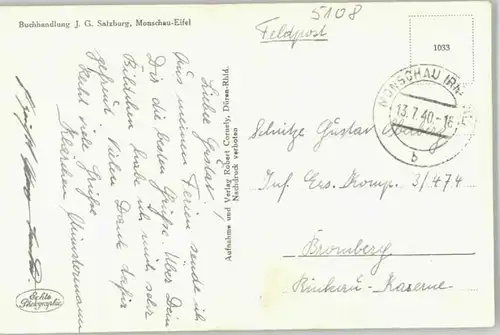 Buchhandlung J. G. Salzburg, Monschau-Eifel
Feldpost
5108
1033
MONSCHAU
13.7.40
b
Liebe Gustav!
Aus meinen Ferien sende ich
Dir die besten Grüße. Über Dein
Bildchen habe ich mich sehr
gefreut. Vielen Dank dafür
Recht viele Grüße
Klärchen Münstermann
Aufnahme und Verlag Robert Comely, Düren-Rhld.
Nachdruck verboten
Echte
Photographie
Schütze Gustav
Inf. Ers. Komp. 3/474
Bromberg
Rinkau-Kaserne